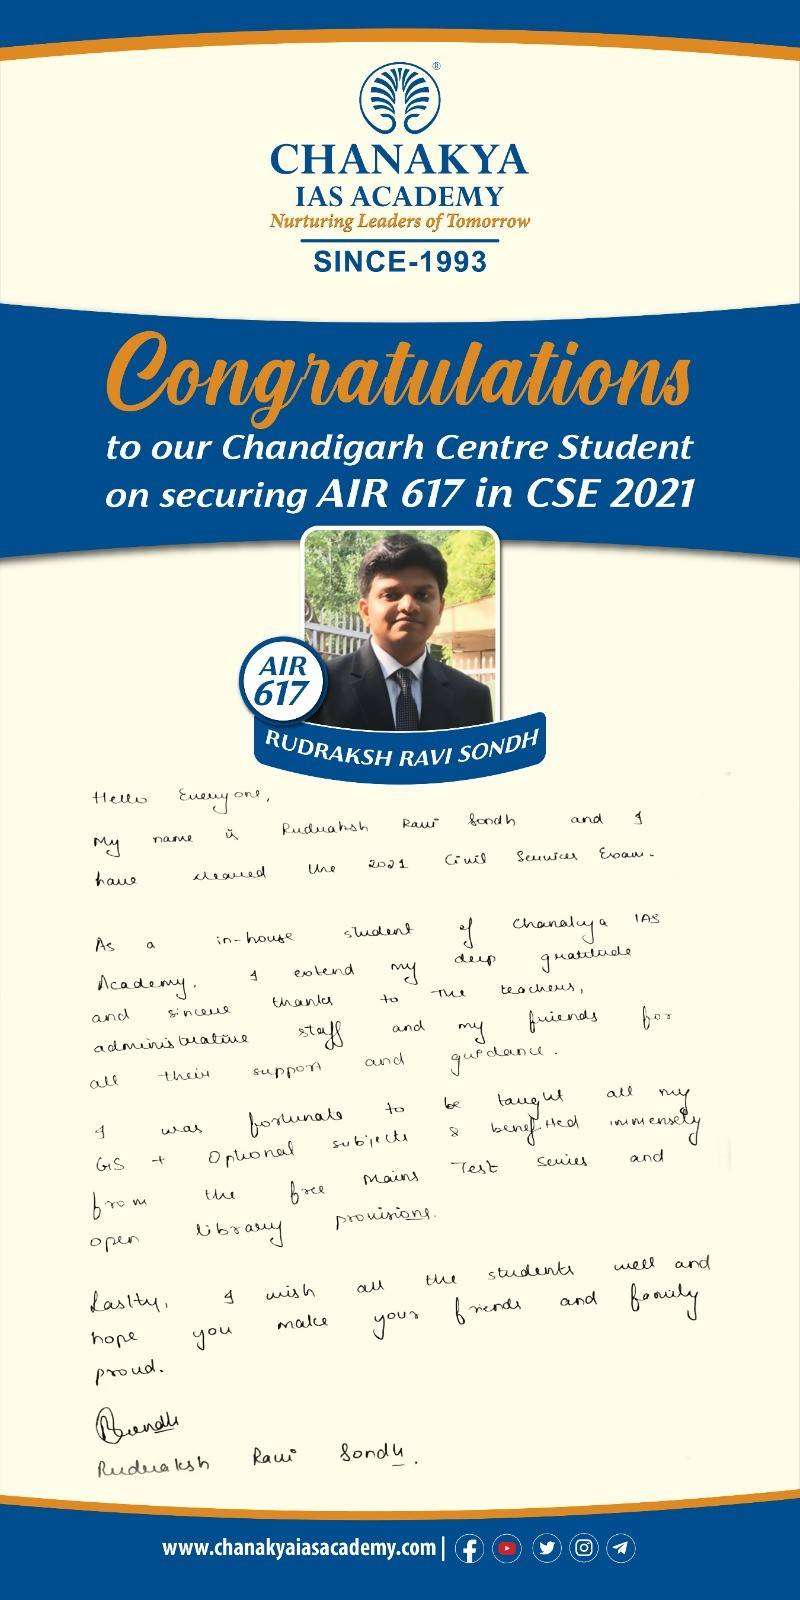 ®
CHANAKYA
IAS ACADEMY
Nurturing Leaders of Tomorrow
SINCE-1993
Congratulations
to our Chandigarh Centre Student
on securing AIR 617 in CSE 2021
AIR
617
RUDRAKSH RAVI SONDH
Hello Everyone,
My name is Rudraksh Ravi Sondh and I
have cleared the 2021 Civil Services Exam.
As a in-house student of Chanakya IAS
Academy. I extend my deep gratitude
and sincere thanks to the teachers,
administrative staff and my friends for
all their support and guidance.
I was fortunate to be taught all my
GS + Optional subjects & benefitted immensely
from the free Mains Test Series and
open library provisions.
Lastly, I wish all the students well and
hope you make your friends and family
proud.
Rudraksh Ravi Sondh.
www.chanakyaiasacademy.com |